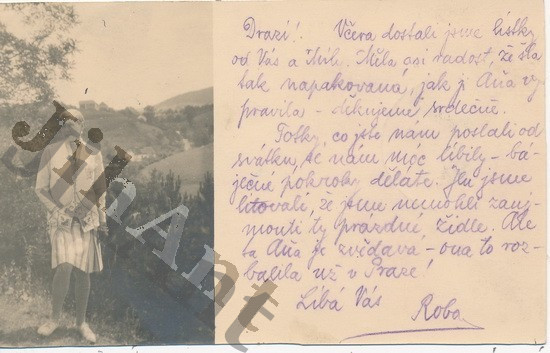 Drazí! Včera dostali jsme lístky
od Vás a Mile. Měla asi radost, že šla
tak napakovaná, jak ji Aňa vy-
pravila – děkujeme srdečně.
Fotky, co jste nám poslali od
svátku, se nám moc líbily – bá-
ječné pokroky děláte. Jen jsme
litovali, že jsme nemohli zauj-
mouti ty prázdné židle. Ale
ta Aňa je zvědavá – ona to roz-
balila už v Praze!
Líbá Vás Roba
JihAnt